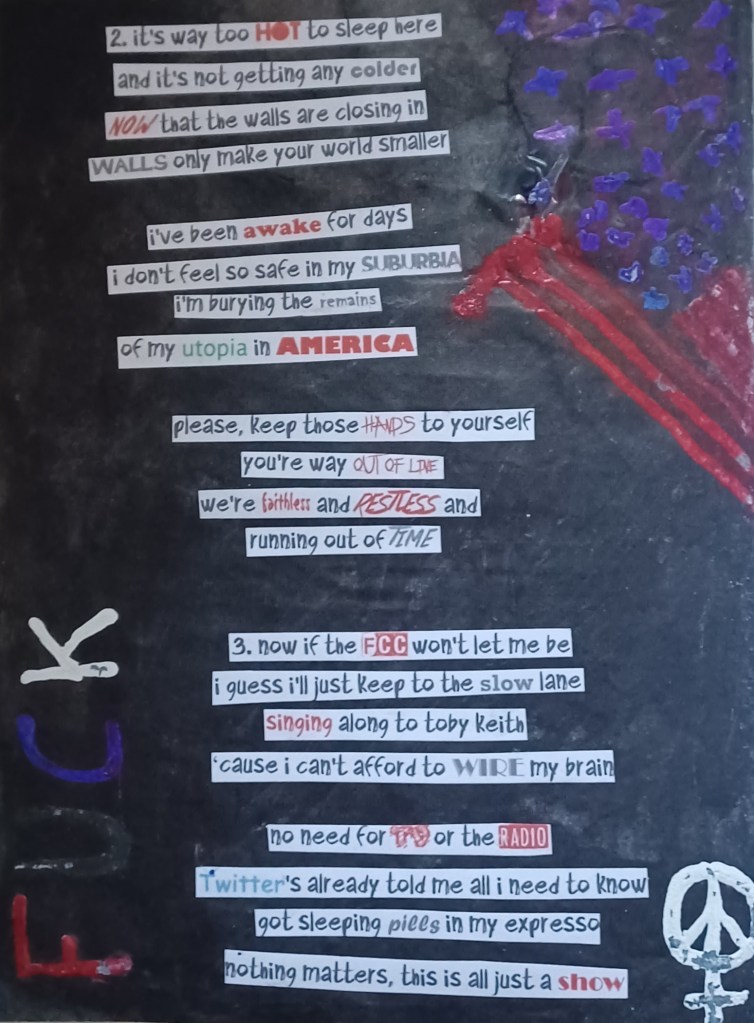 2. it's way too HOT to sleep here
and it's not getting any colder
NOW that the walls are closing in
WALLS only make your world smaller
i've been awake for days
i don't feel so safe in my SUBURBIA
i'm burying the remains
of my utopia in AMERICA
please, keep those HANDS to yourself
you're way OUT OF LINE
we're faithless and RESTLESS and
running out of TIME
3. now if the FCC won't let me be
i guess i'll just keep to the slow lane
singing along to toby keith
'cause i can't afford to WIRE my brain
no need for TVS or the RADIO
Twitter's already told me all i need to know
got sleeping pills in my expresso
nothing matters, this is all just a show
FUCK